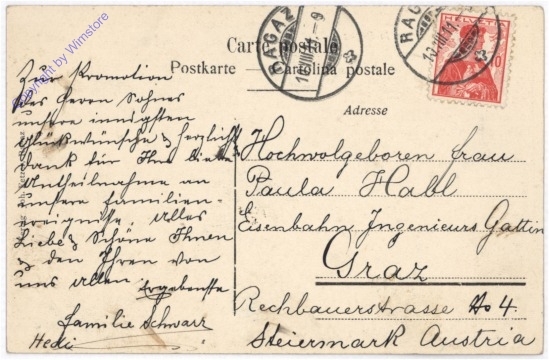 Carte postale
Postkarte Cartolina postale
Adresse
RAGAZ
RAGAZ
HELVETIA
10
Copyright by Wimstore
Zur Promotion
des Herrn Sohnes
unsere innigsten
Glückwünsche & herzlichst
dank für Ihre liebe
Antheilnahme an
unsere familien-
ereignisse. Alles
Liebe & Schöne Ihnen
& den Ihren von
uns allen
Ergebenste
familie Schwarz
Hedi
Hochwolgeboren frau
Paula Habl
Eisenbahn Ingenieurs Gattin
Graz
Rechbauerstrasse No 4.
Steiermark Austria